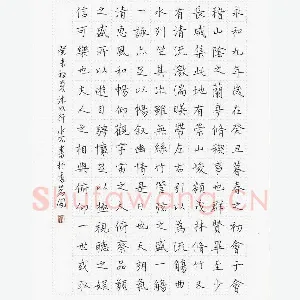 永和九年歲在癸丑暮春之初會于會
稽山陰之蘭亭脩禊事也群賢畢至少
長咸集此地有崇山峻領茂林脩竹又
有清流激湍暎帶左右引以為流觴曲
水列坐其次雖無絲竹管弦之盛一觴
一詠亦足以暢敘幽情是日也天朗氣
清惠風和暢仰觀宇宙之大俯察品類
之盛所以遊目騁懷足以極視聽之娛
信可樂也夫人之相與俯仰一世或取
癸未初夏
Shufawang.CN